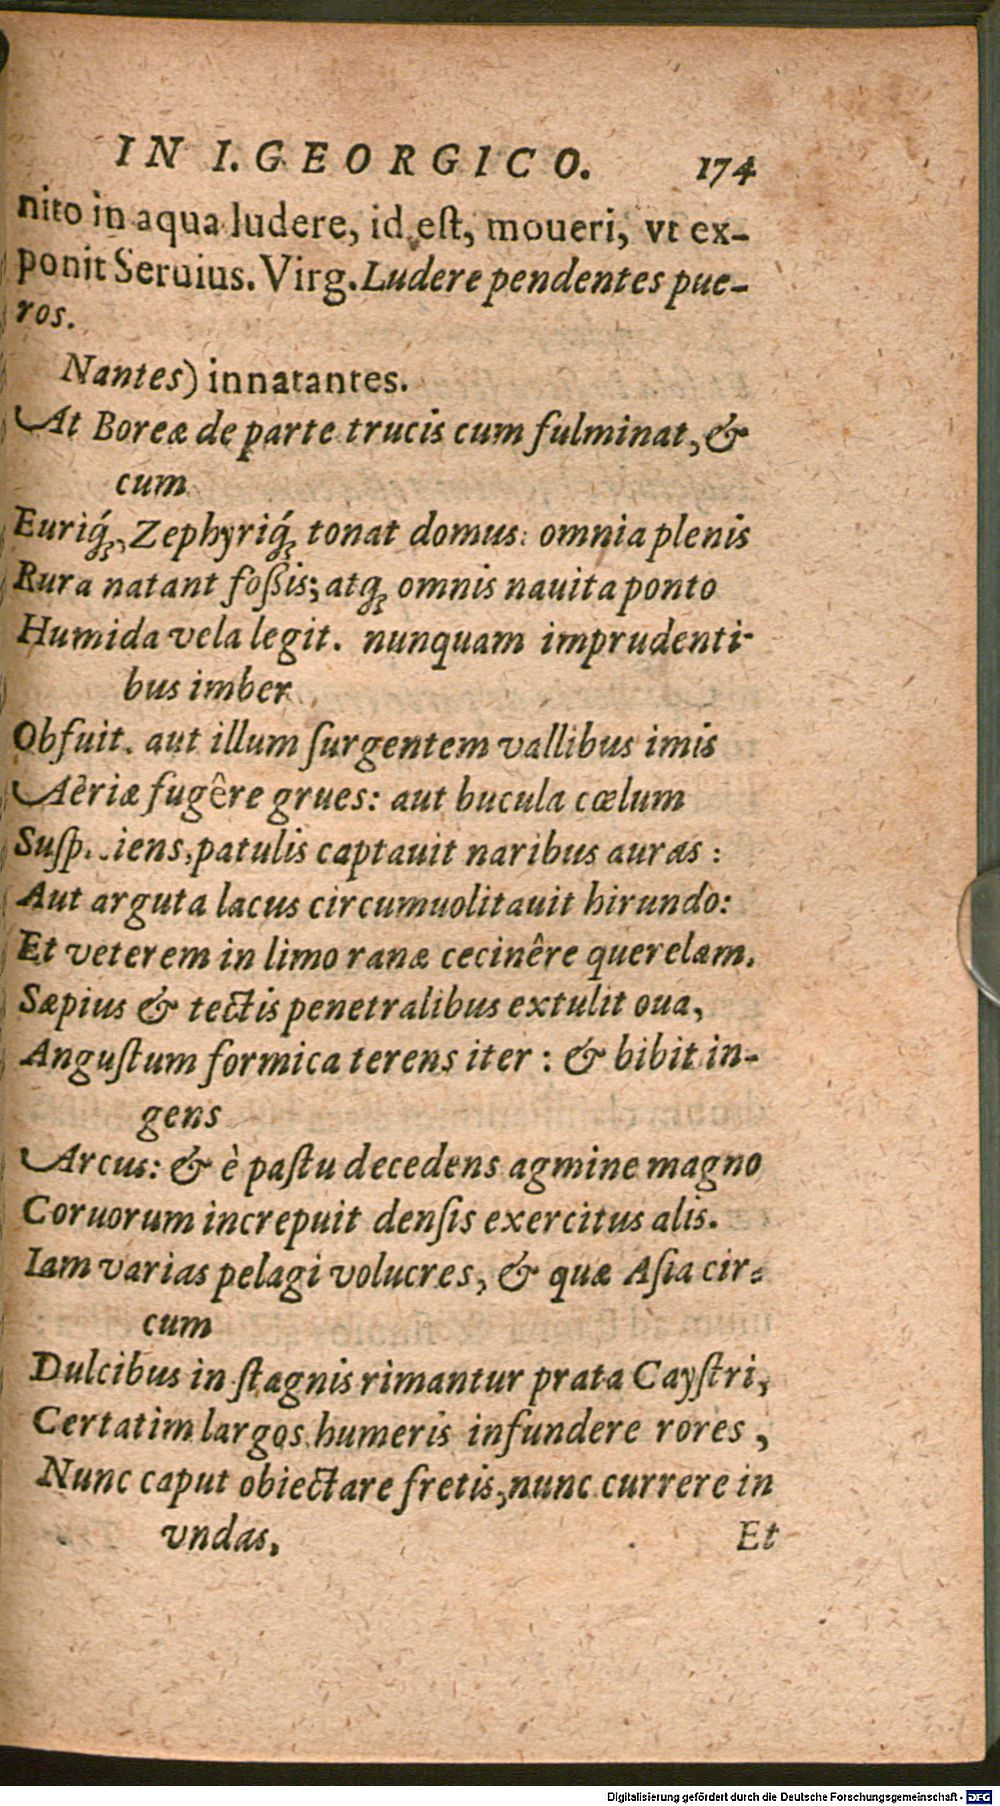 IN I. GEORGICO. 174
nito in aqua ludere, id est, moueri, vt ex-
ponit Seruius. Virg. Ludere pendentes pue-
ros.
Nantes) innatantes.
At Boreæ de parte trucis cum fulminat, &
cum
Euriq́;, Zephyriq́; tonat domus: omnia plenis
Rura natant foßis; atq; omnis nauita ponto
Humida vela legit. nunquam imprudenti-
bus imber
Obfuit. aut illum ſurgentem vallibus imis
Aëriæ fugêre grues: aut bucula cœlum
Suſp..iens, patulis captauit naribus auras:
Aut arguta lacus circumuolitauit hirundo:
Et veterem in limo ranæ cecinêre querelam.
Sæpius & tectis penetralibus extulit oua,
Anguſtum formica terens iter: & bibit in-
gens
Arcus: & è paſtu decedens agmine magno
Coruorum increpuit denſis exercitus alis.
Iam varias pelagi volucres, & quæ Aſia cir-
cum
Dulcibus in ſtagnis rimantur prata Cayſtri,
Certatim largos humeris infundere rores,
Nunc caput obiectare fretis, nunc currere in
vndas, Et
Digitalisierung gefördert durch die Deutsche Forschungsgemeinschaft - DFG